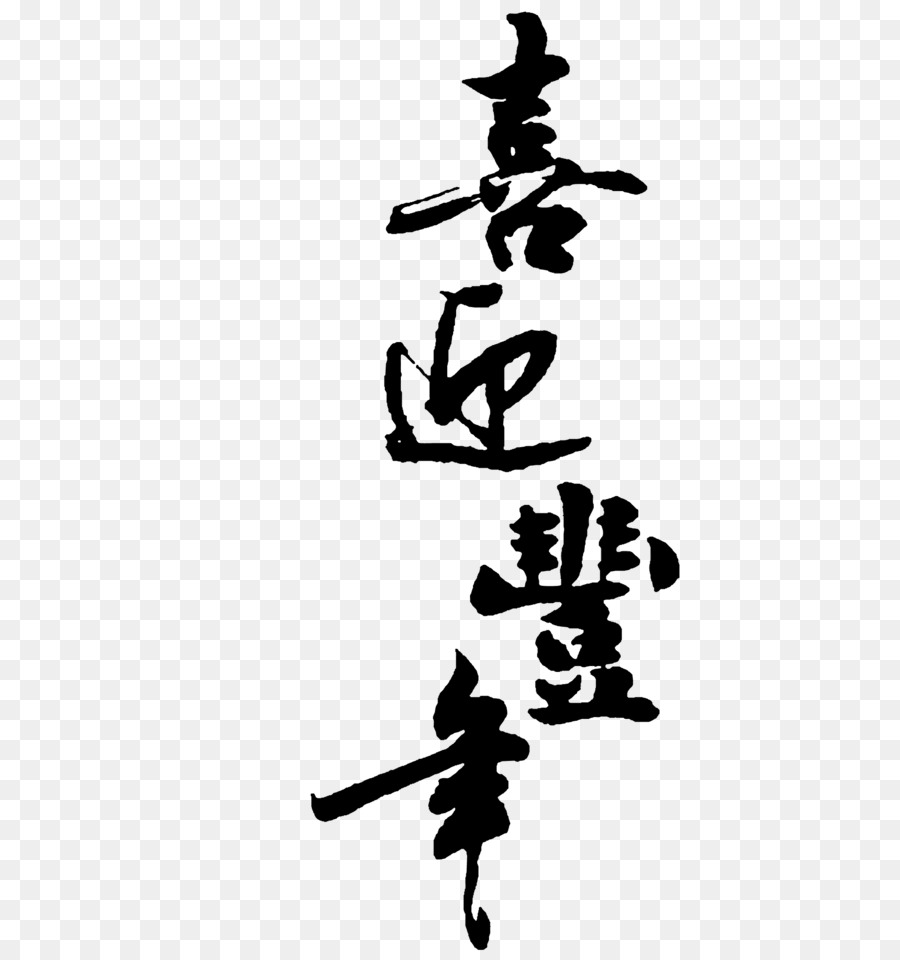 喜迎豐年